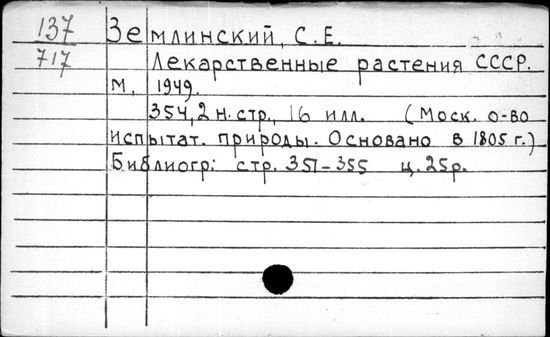 137 Землинский, С.Е.
717 Лекарственные растения СССР.
М, 1949.
354,2 н.стр., 16 илл. (Моск. о-во
испытат. природы. Основано в 1805 г.)
Библиогр: стр. 351-355 ц. 25р.